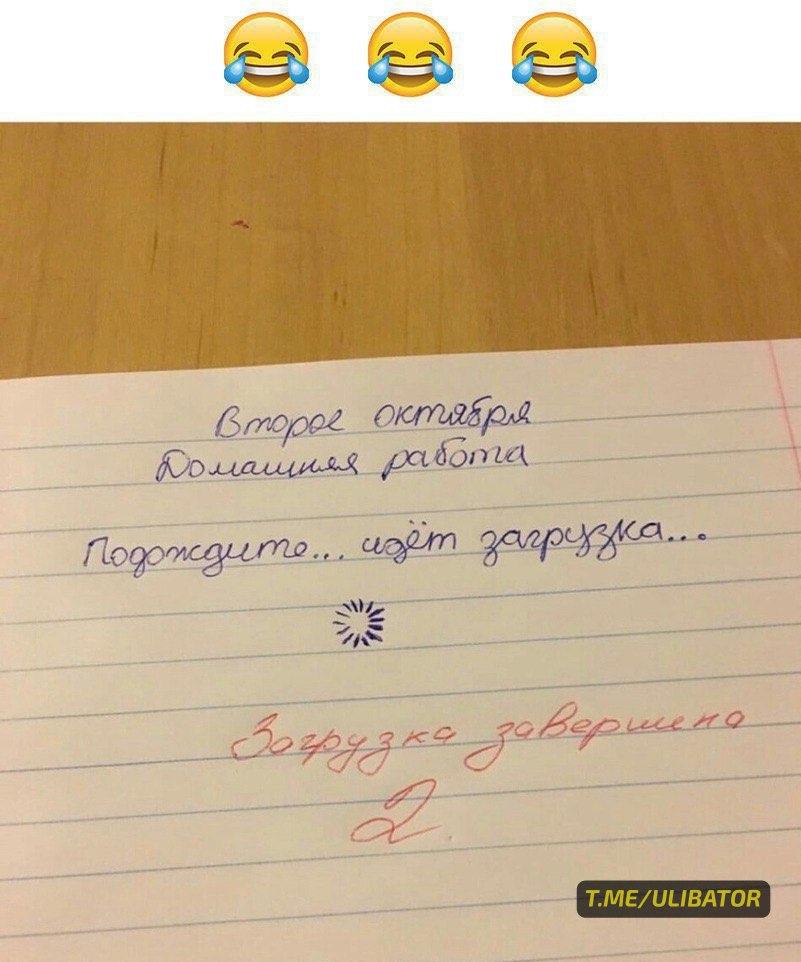 Второе октября
Домашняя работа
Подождите... идёт загрузка...
Загрузка завершена
2.
T.ME/ULIBATOR